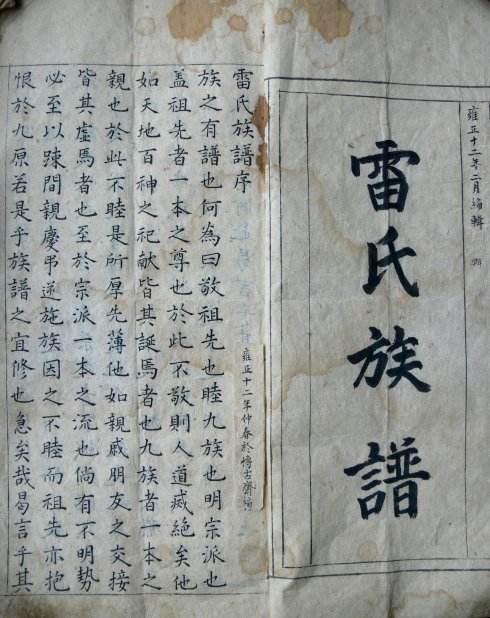 雍正十二年二月編輯
雷氏族譜
雷氏族譜序
族之有譜也何為曰敬祖先也睦九族也明宗派也
蓋祖先者一本之尊也於此不敬則人道烕絕矣他
如天地百神之祀献皆其誕焉者也九族者一本之
親也於此不睦是所厚先薄他如親戚朋友之交接
皆其虛焉者也至於宗派一本之流也倘有不明勢
必至以踈間親慶弔逆施族因之不睦而祖先亦抱
恨於九原若是乎族譜之宜修也急矣哉曷言乎其
雍正十二年仲春於博古齋